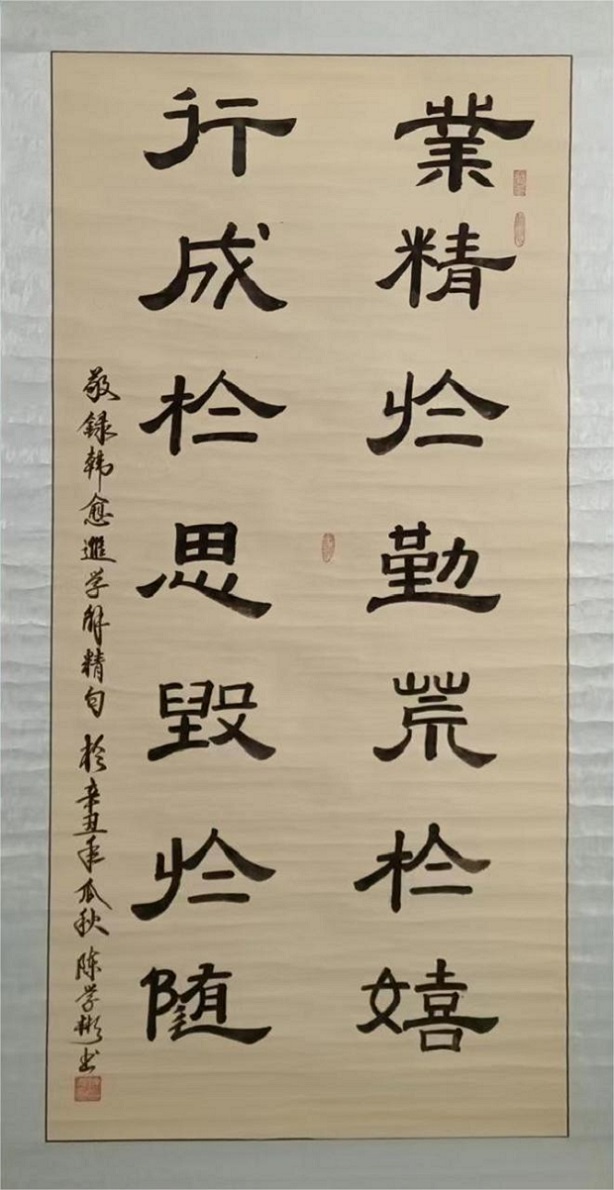 業精於勤荒於嬉
行成於思毀於随
敬録韩愈進学解精句 於辛丑年瓜秋 陈学彬书